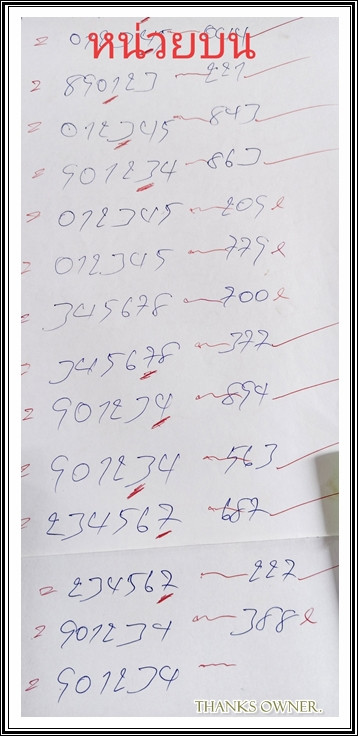 หน่วยบน
890123 221
012345 843
901234 863
012345 209 e
012345 779 e
345678 700 e
345678 377
901234 894
901234 563
234567 687
234567 227
901234 388 e
901234
THANKS OWNER.